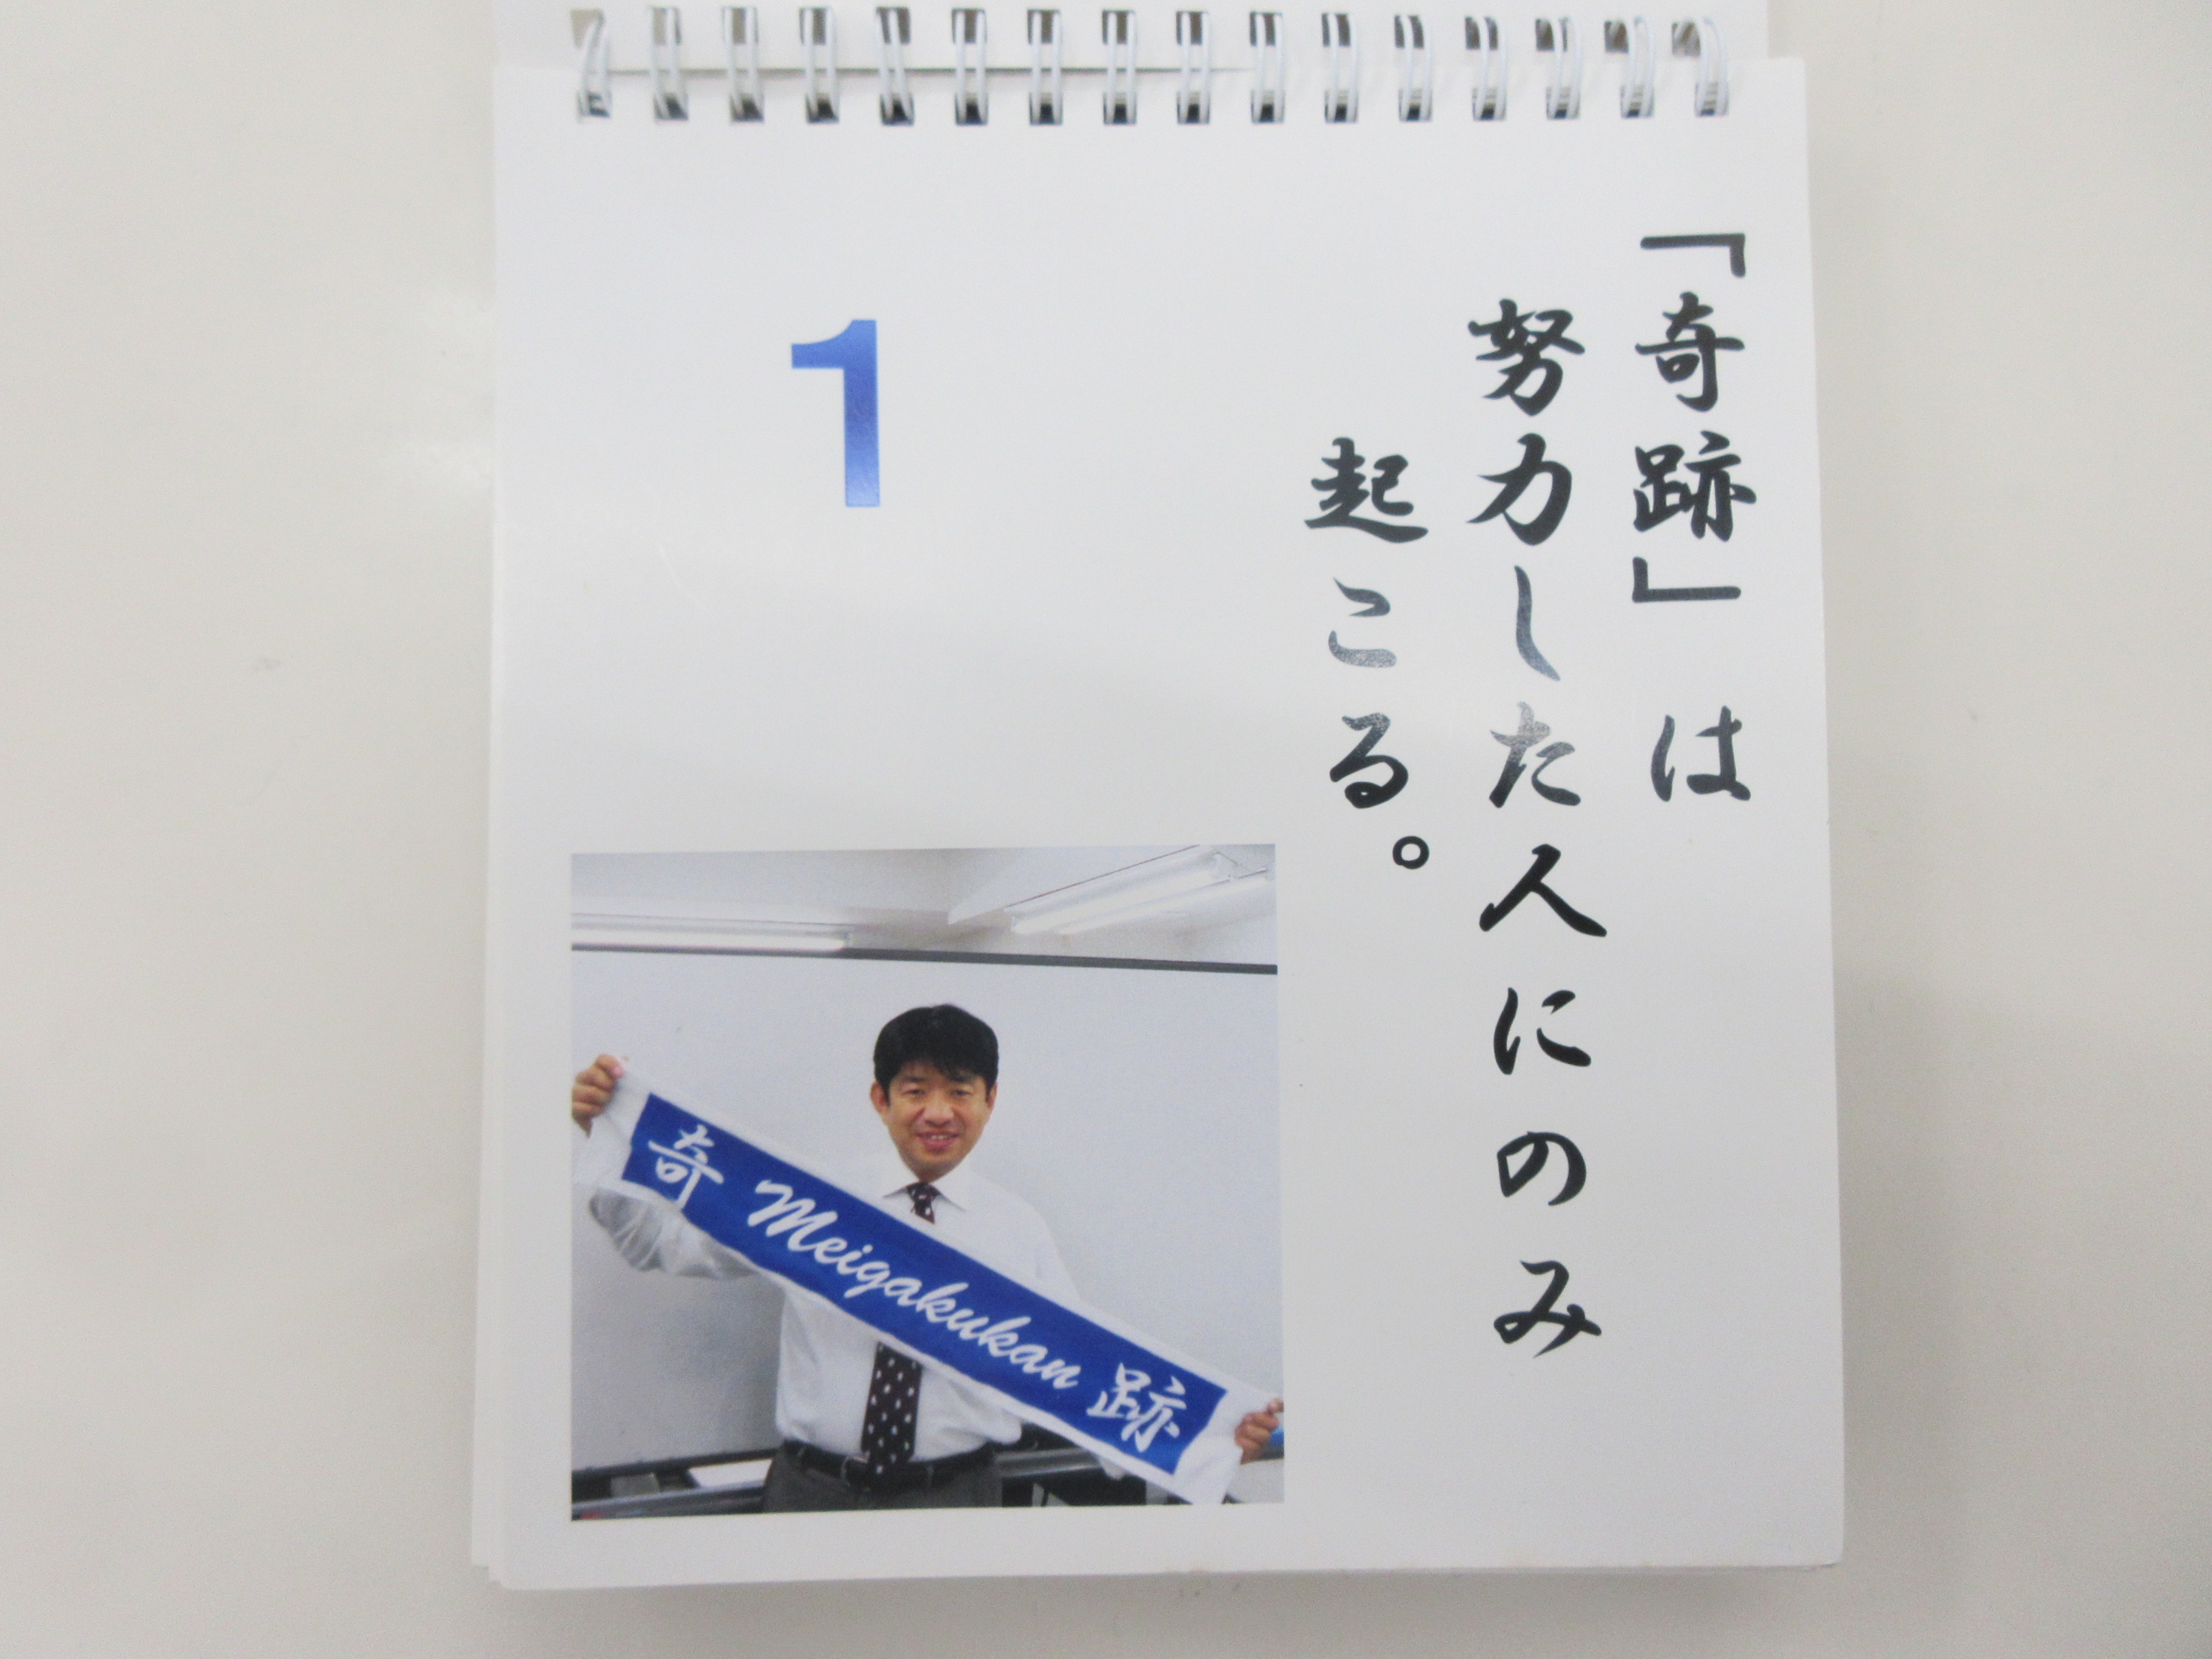 「奇跡」は
努力した人にのみ
起こる。
1
奇 Meigakukan 跡